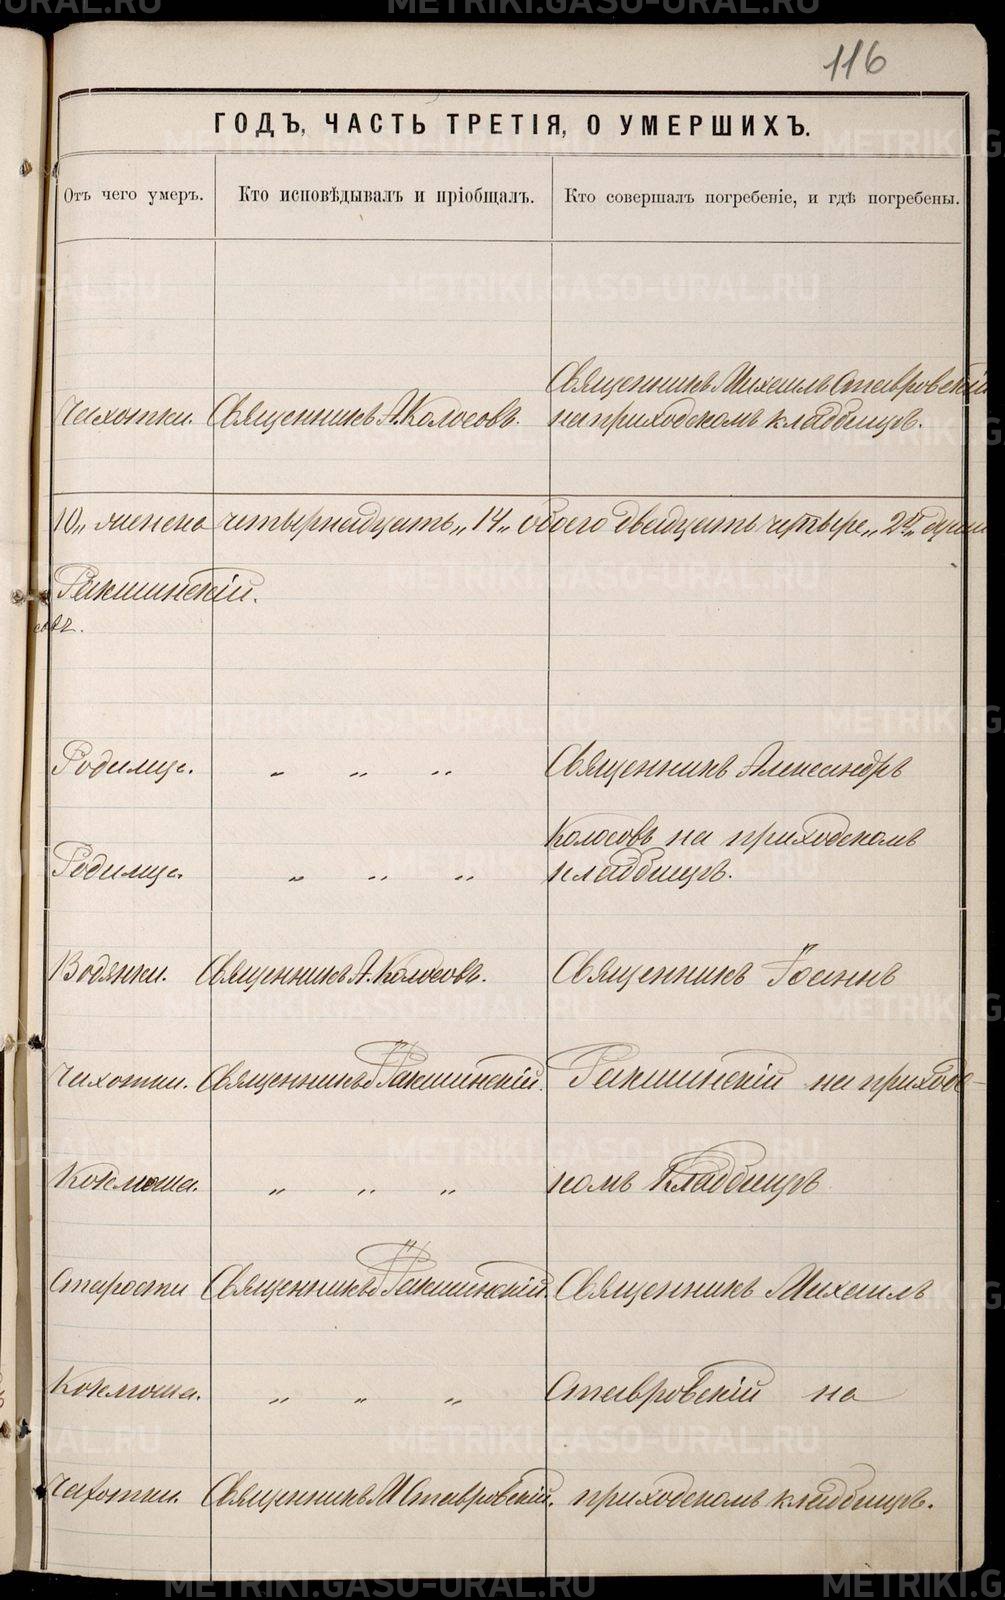 116
ГОДЪ, ЧАСТЬ ТРЕТІЯ, О УМЕРШИХЪ.
Отъ чего умеръ. Кто исповѣдывалъ и пріобщалъ. Кто совершалъ погребеніе, и гдѣ погребены.
Священникъ Михаилъ Ставровскій
Чахотки. Священникъ А. Колосовъ. на приходскомъ кладбищѣ.
10„ женска четырнадцать„ 14„ обоего двадцать четыре„ 24„ души
Ракшинскій.
совъ.
Родимца. „ „ „ Священникъ Александръ
Колосовъ на приходскомъ
Родимца. „ „ „ кладбищѣ.
Водянки. Священникъ А. Колосовъ. Священникъ Іоаннъ
Чахотки. Священникъ І Ракшинскій. Ракшинскій на приходс-
Коклюша. „ „ „ комъ кладбищѣ
Старости Священникъ І Ракшинскій. Священникъ Михаилъ
Коклюша. „ „ „ Ставровскій на
Чахотки. Священникъ М Ставровскій. приходскомъ кладбищѣ.
METRIKI.GASO-URAL.RU